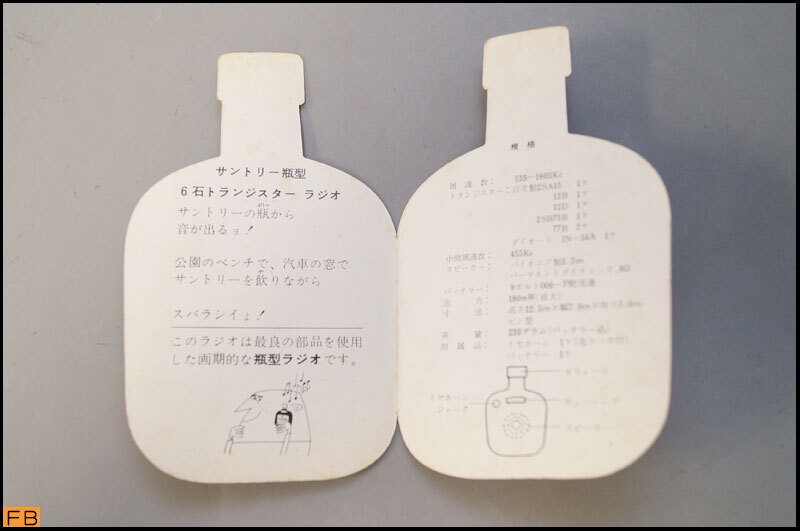 サントリー瓶型
6石トランジスター ラジオ
サントリーの瓶から
音が出るョ!
公園のベンチで、汽車の窓で
サントリーを飲りながら
スバラシイょ!
このラジオは最良の部品を使用
した画期的な瓶型ラジオです。
規格
周波数: 535—1605Kc
トランジスター: 日立製2SA15 1ケ
12B 1ケ
12D 1ケ
2SB75B 1ケ
77B 2ケ
ダイオード 1N—34A 1ケ
中間周波数: 455Kc
スピーカー: パイオニア製5.7cm
パーマネントダイナミック
バッテリー: 9ボルト006—P乾電池
出力: 180mW(最大)
寸法: 高さ12.5cm×幅7.0cm×
ビン型
重量: 230グラム(バッテリー込)
附属品: イヤホーン 1ケ
バッテリー 1ケ
ボリューム
イヤホーン
ジャック
チューニング
スピーカー
FB